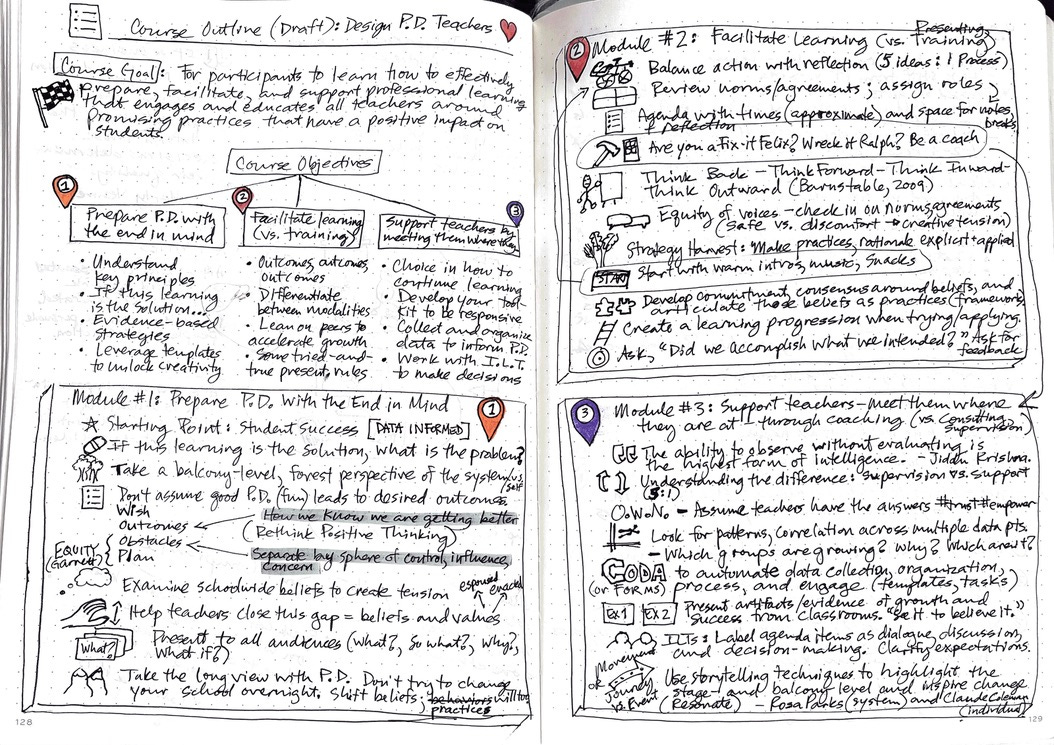 Course Outline (Draft): Design P.D. Teachers
Course Goal: For participants to learn how to effectively
prepare, facilitate, and support professional learning
that engages and educates all teachers around
promising practices that have a positive impact on
students.
Course Objectives
1
Prepare P.D. with
the end in mind
• Understand
key principles
• If this learning
is the solution...
• Evidence-based
strategies
• Leverage templates
to unlock creativity
2
Facilitate learning
(vs. training)
• Outcomes, outcomes,
outcomes
• Differentiate
between modalities
• Lean on peers to
accelerate growth
• Some tried-and-
true present. rules
3
Support teachers by
meeting them where they
• Choice in how to
continue learning
• Develop your tool-
kit to be responsive
• Collect and organize
data to inform P.D.
• Work with I.L.T.
to make decisions
Module #1: Prepare P.D. With the End in Mind
1
Starting Point: Student Success [DATA INFORMED]
If this learning is the solution, what is the problem?
Take a balcony-level, forest perspective of the system/vs.
self
Don't assume good P.D. (fun) leads to desired outcomes
Wish
Outcomes
Obstacles
Plan
How we know we are getting better
(Rethink Positive Thinking)
Separate by sphere of control, influence,
concern
EQUITY
(Garrett)
Examine schoolwide beliefs to create tension
espoused enacted
Help teachers close this gap = beliefs and values
What?
Present to all audiences (What?, So what?, Why?,
What if?)
Take the long view with P.D. Don't try to change
your school overnight. Shift beliefs; behaviors will too
practices
128
2
Module #2: Facilitate Learning (vs. training)
Presenting,
Balance action with reflection (5 ideas: 1 Process)
Review norms/agreements; assign roles
Agenda with times (approximate) and space for notes,
+ reflection
breaks
Are you a Fix-it Felix? Wreck it Ralph? Be a coach
Think Back – Think Forward – Think Inward –
Think Outward (Barnstable, 2009)
Equity of voices – check in on norms, agreements
(safe vs. discomfort → creative tension)
Strategy Harvest: Make practices, rationale explicit + applied
START
Start with warm intros, music, snacks
Develop commitment, consensus around beliefs, and
articulate those beliefs as practices (framework)
Create a learning progression when trying/applying.
Ask, "Did we accomplish what we intended?" Ask for
feedback
3
Module #3: Support teachers – meet them where
they are at – through coaching (vs. Consulting,
Supervision)
The ability to observe without evaluating is
the highest form of intelligence. – Jiddu Krishna.
Understanding the difference: supervision vs. support
(5:1)
C.o.W.o.N. – Assume teachers have the answers #trust #empower
Look for patterns, correlation across multiple data pts.
– Which groups are growing? Why? Which aren't?
CODA to automate data collection, organization,
(or FORMS) process, and engage (templates, tasks)
EX 1 EX 2 Present artifacts/evidence of growth and
success from classrooms. "See it to believe it."
ILTs: Label agenda items as dialogue, discussion,
and decision-making. Clarify expectations.
Movement
or
Journey
vs. Event
Use storytelling techniques to highlight the
stage- and balcony level and inspire change
(Resonate) – Rosa Parks (system) and Claude Coleman
(individual)
129